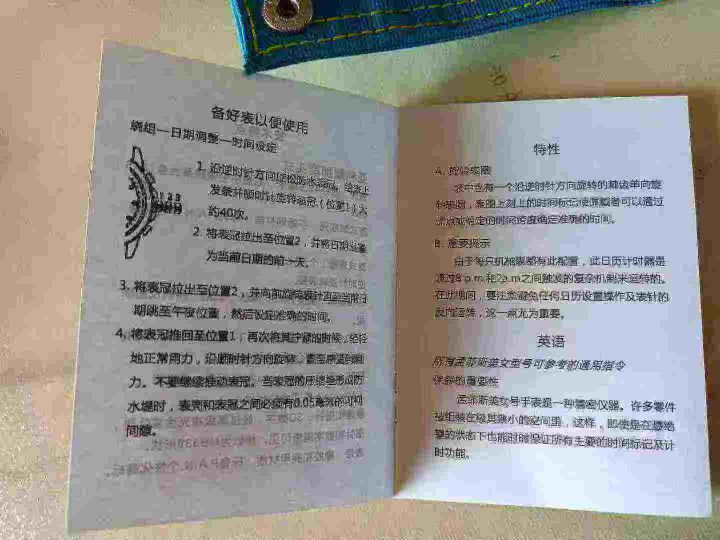 备好表以便使用
绕组—日期调整—时间设定
1. 沿逆时针方向旋松防水表冠。给表上
发条并顺时针旋转表冠（位置1）大
约40次。
2. 将表冠拉出至位置2，并将日期设置
为当前日期的前一天。
3. 将表冠拉出至位置2，并向前旋转表针直至当前日
期跳至午夜位置，然后设定准确的时间。
4. 将表冠推回至位置1，再次将其拧紧的时候，轻轻
地正常用力，沿顺时针方向旋转，直至感到阻
力。不要继续推动表冠。当表冠的压缩垫形成防
水堤时，表壳和表冠之间必须有0.05毫米的可用
间隙。
特性
A. 旋转表圈
一个沿逆时针方向旋转的棘齿单向旋
转表圈，表圈上刻上的时间标记使佩戴者可以通过
给定的时间跨度确定准确的时间。
B. 重要提示
由于每只机械表都有此配置，此日历计时器是
通过8 p.m.和2a.m之间触发的复杂机制来运转的。
在此期间，要注意避免任何日历设置操作及表针的
反向运转，这一点尤为重要。
英语
所有孟菲斯美女型号可参考的通用指令
保养的重要性
孟菲斯美女号手表是一种精密仪器。许多零件
被组装在极其狭小的空间里，这样，即使是在
的状态下也能时时保证所有主要的时间标记及计
时功能。